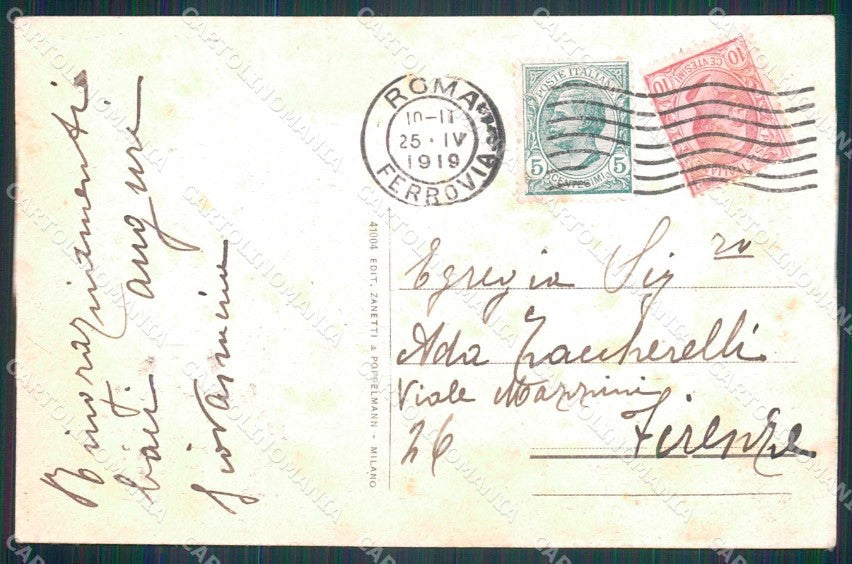 Ringraziamenti
baci auguri
Giovannina
ROMA
10-11
25·IV
1919
FERROVIA
POSTE ITALIANE
5 5
CENTESIMI
10 10
CENTESIMI
41004 EDIT. ZANETTI & POPPELMANN - MILANO
Egregia Sig ra
Ada Zaccherelli
Viale Mazzini
26 Firenze
CARTOLINOMANIA